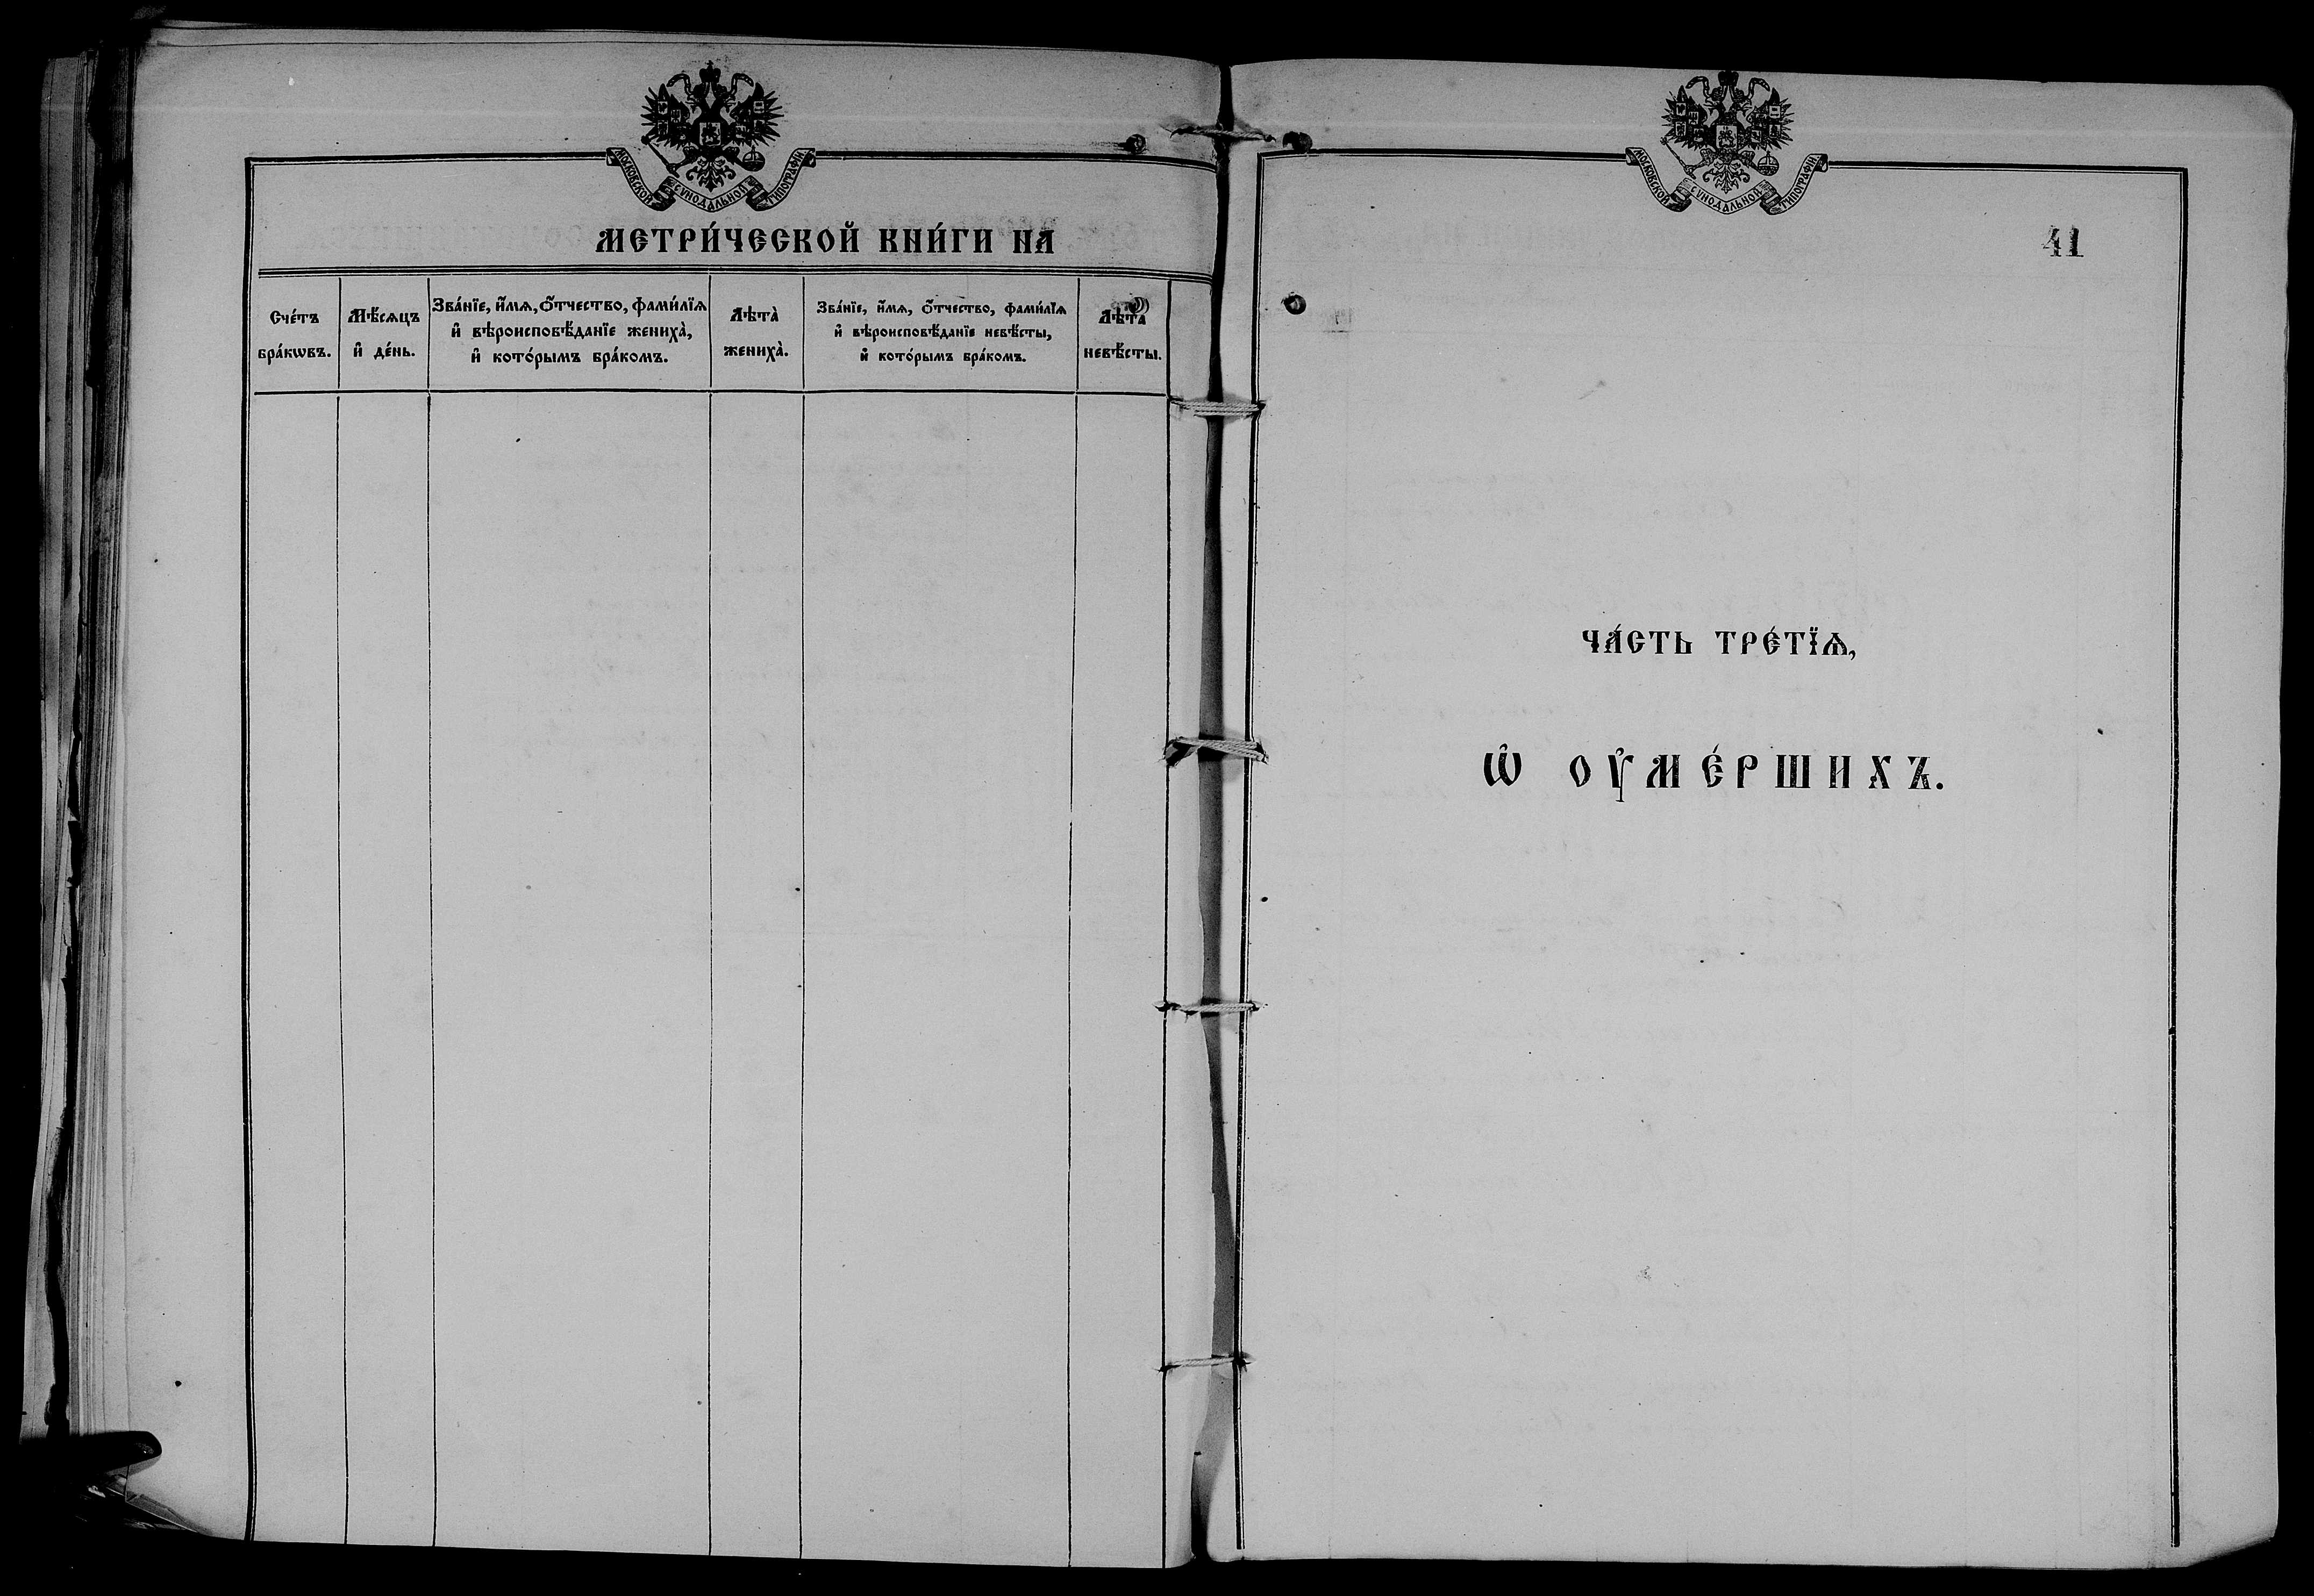 МОСКОВСКОЙ СѴНОДАЛЬНОЙ ТИПОГРАФІИ
МЕТРИ́ЧЕСКОЙ КНИ́ГИ НА
Сче́тъ
бра́кѡвъ.
Мѣ́сѧцъ
и҆ де́нь.
Зва́нїе, и҆́мѧ, ѻ҆́тчество, фами́лїѧ
и҆ вѣроисповѣ́данїе жениха̀,
и҆ кото́рымъ бра́комъ.
Лѣта̀
жениха̀.
Зва́нїе, и҆́мѧ, ѻ҆́тчество, фами́лїѧ
и҆ вѣроисповѣ́данїе невѣ́сты,
и҆ кото́рымъ бра́комъ.
Лѣта̀
невѣ́сты.
МОСКОВСКОЙ СѴНОДАЛЬНОЙ ТИПОГРАФІИ
41
ЧА́СТЬ ТРЕ́ТЇѦ,
Ѡ҆ ОУ҆МЕ́РШИХЪ.